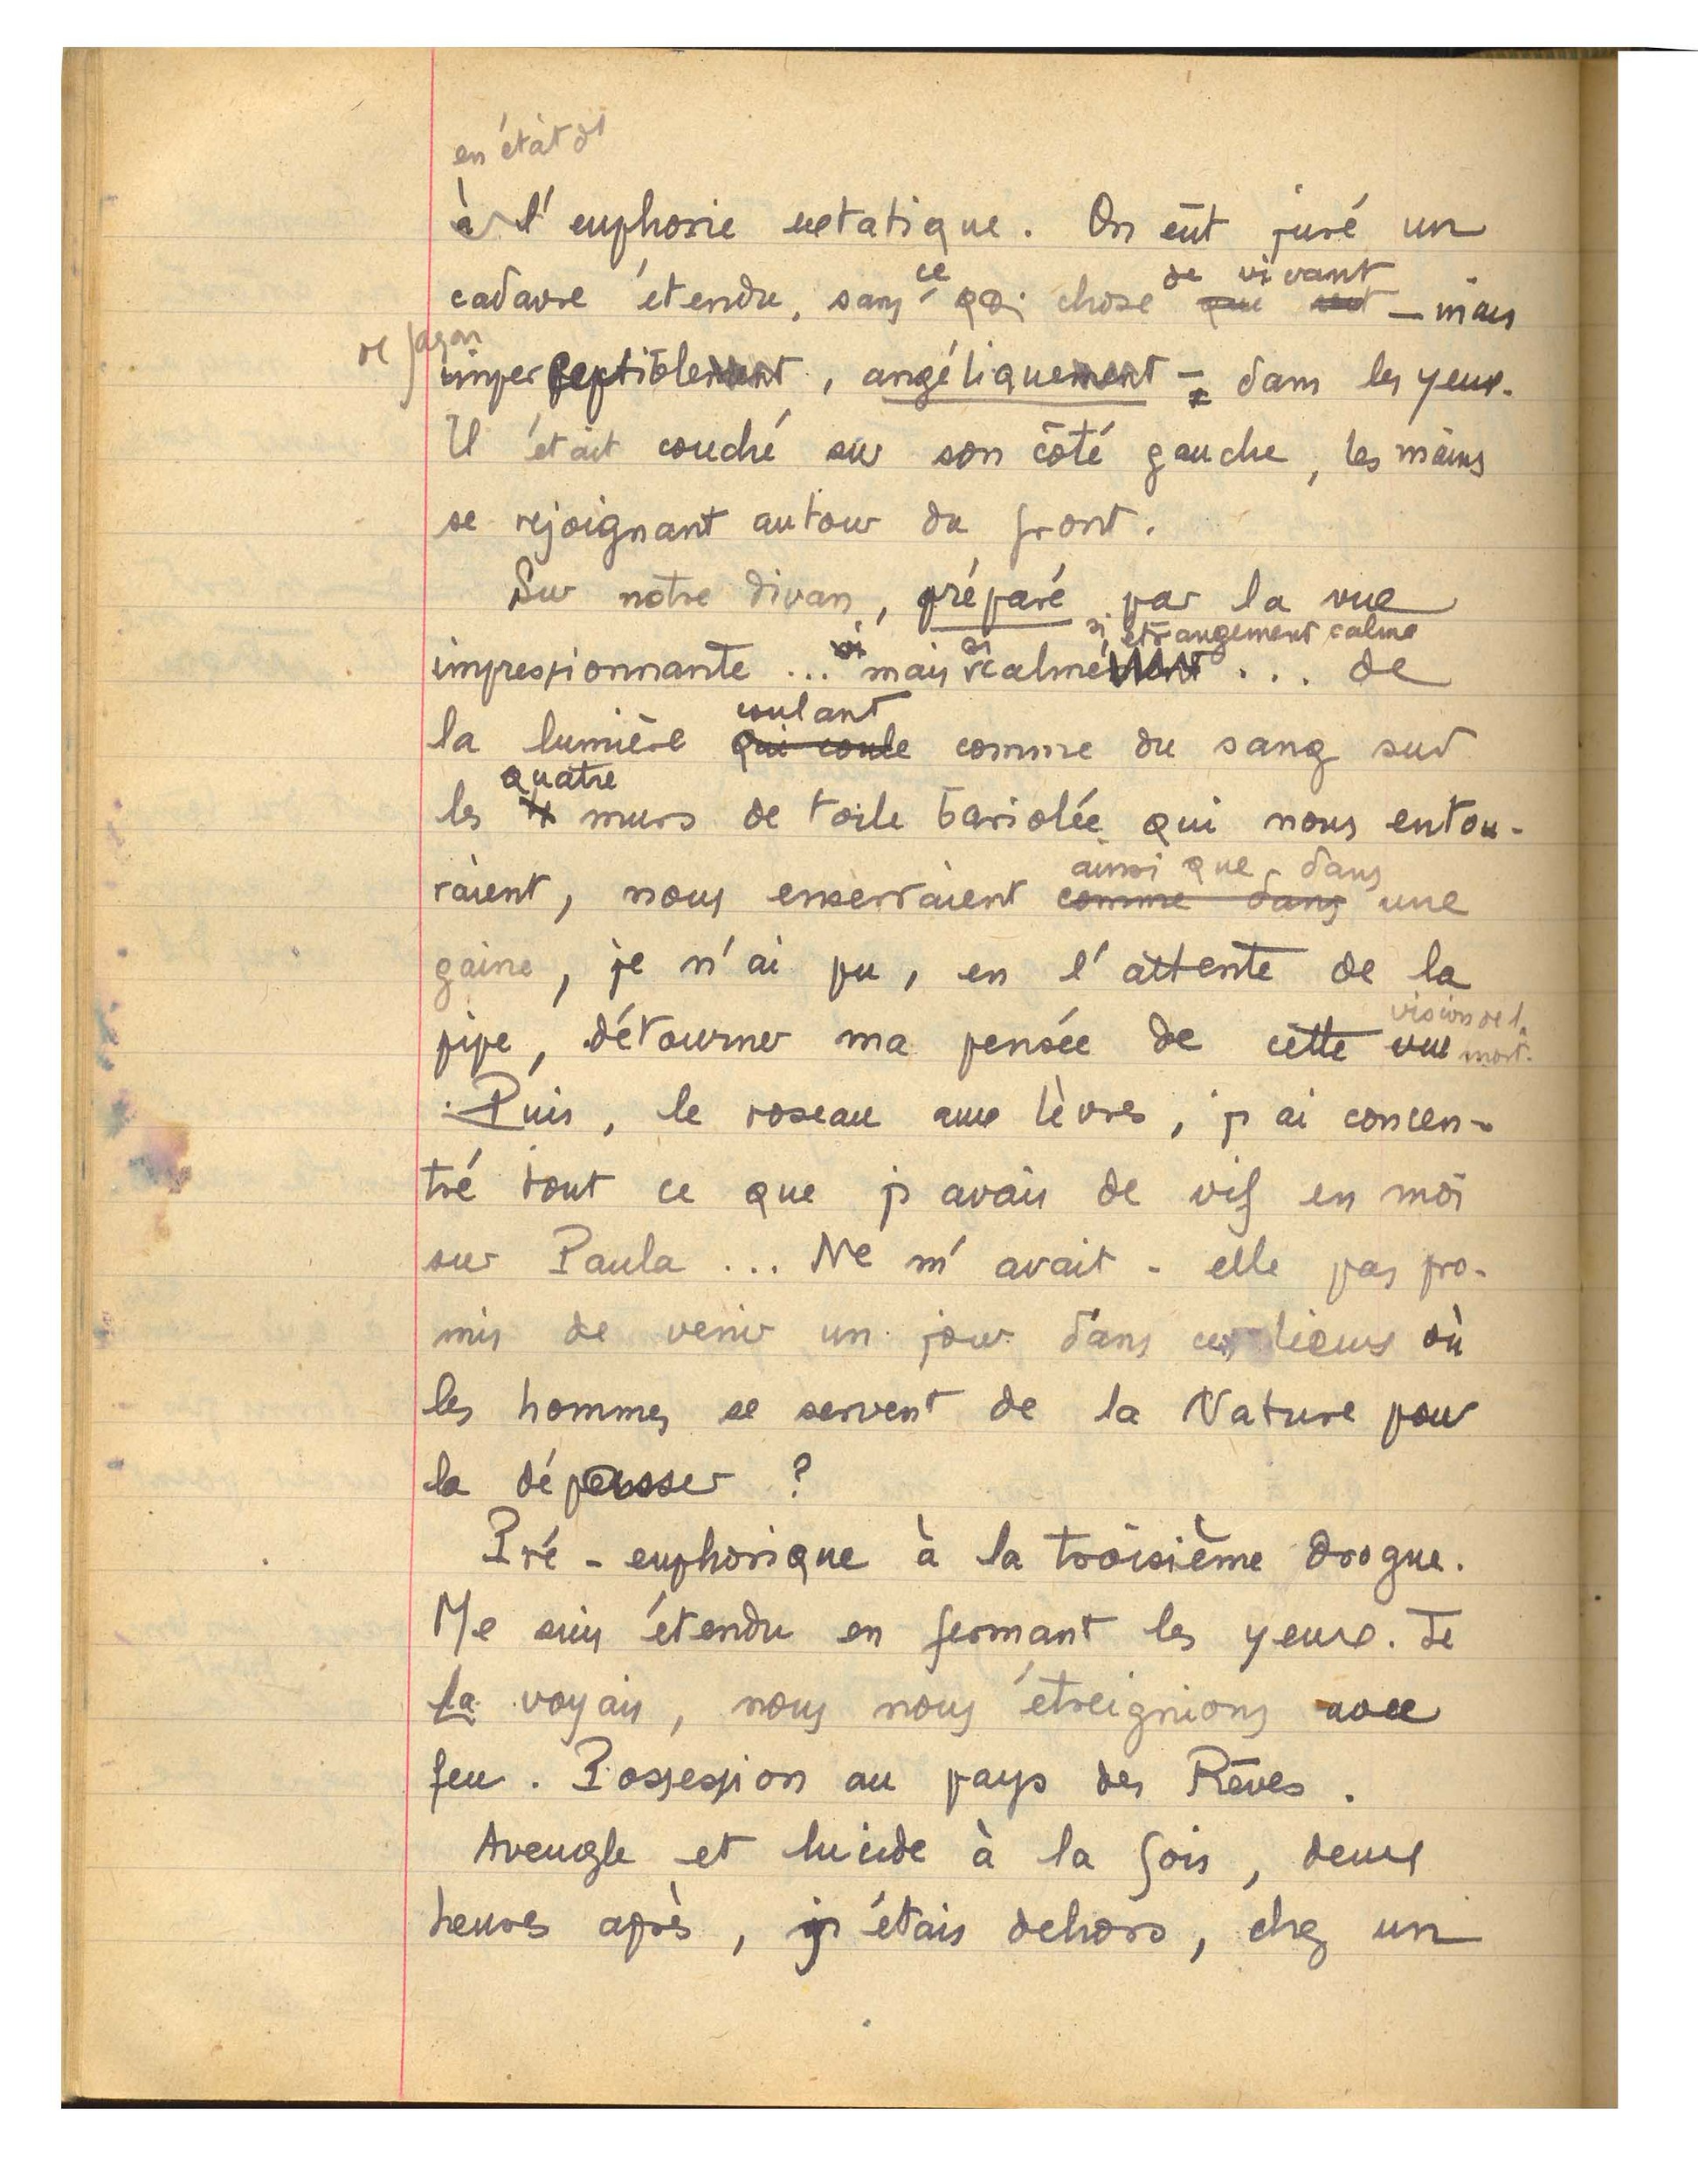 en état d'
à l'euphorie extatique. On eût juré un
ce de vivant
cadavre étendu, sans qq. chose que — mais
de façon
imperceptiblement, angéliquement — dans les yeux.
Il était couché sur son côté gauche, les mains
se rejoignant autour du front.
Sur notre divan, préparé par la vue
si si étrangement calme
impressionnante ... mais calme ... de
coulant
la lumière qui coule comme du sang sur
quatre
les 4 murs de toile bariolée qui nous entou-
ainsi que dans
raient, nous enserraient comme dans une
gaine, je n'ai pu, en l'attente de la
vision de la
pipe, détourner ma pensée de cette vue mort.
Puis, le roseau aux lèvres, j'ai concen-
tré tout ce que j'avais de vif en moi
sur Paula ... Ne m'avait-elle pas pro-
mis de venir un jour dans ces lieux où
les hommes se servent de la Nature pour
la dépasser ?
Pré-euphorique à la troisième drogue.
Me suis étendu en fermant les yeux. Je
la voyais, nous nous étreignions avec
feu. Possession au pays des Rêves.
Aveugle et lucide à la fois, deux
heures après, j'étais dehors, chez un